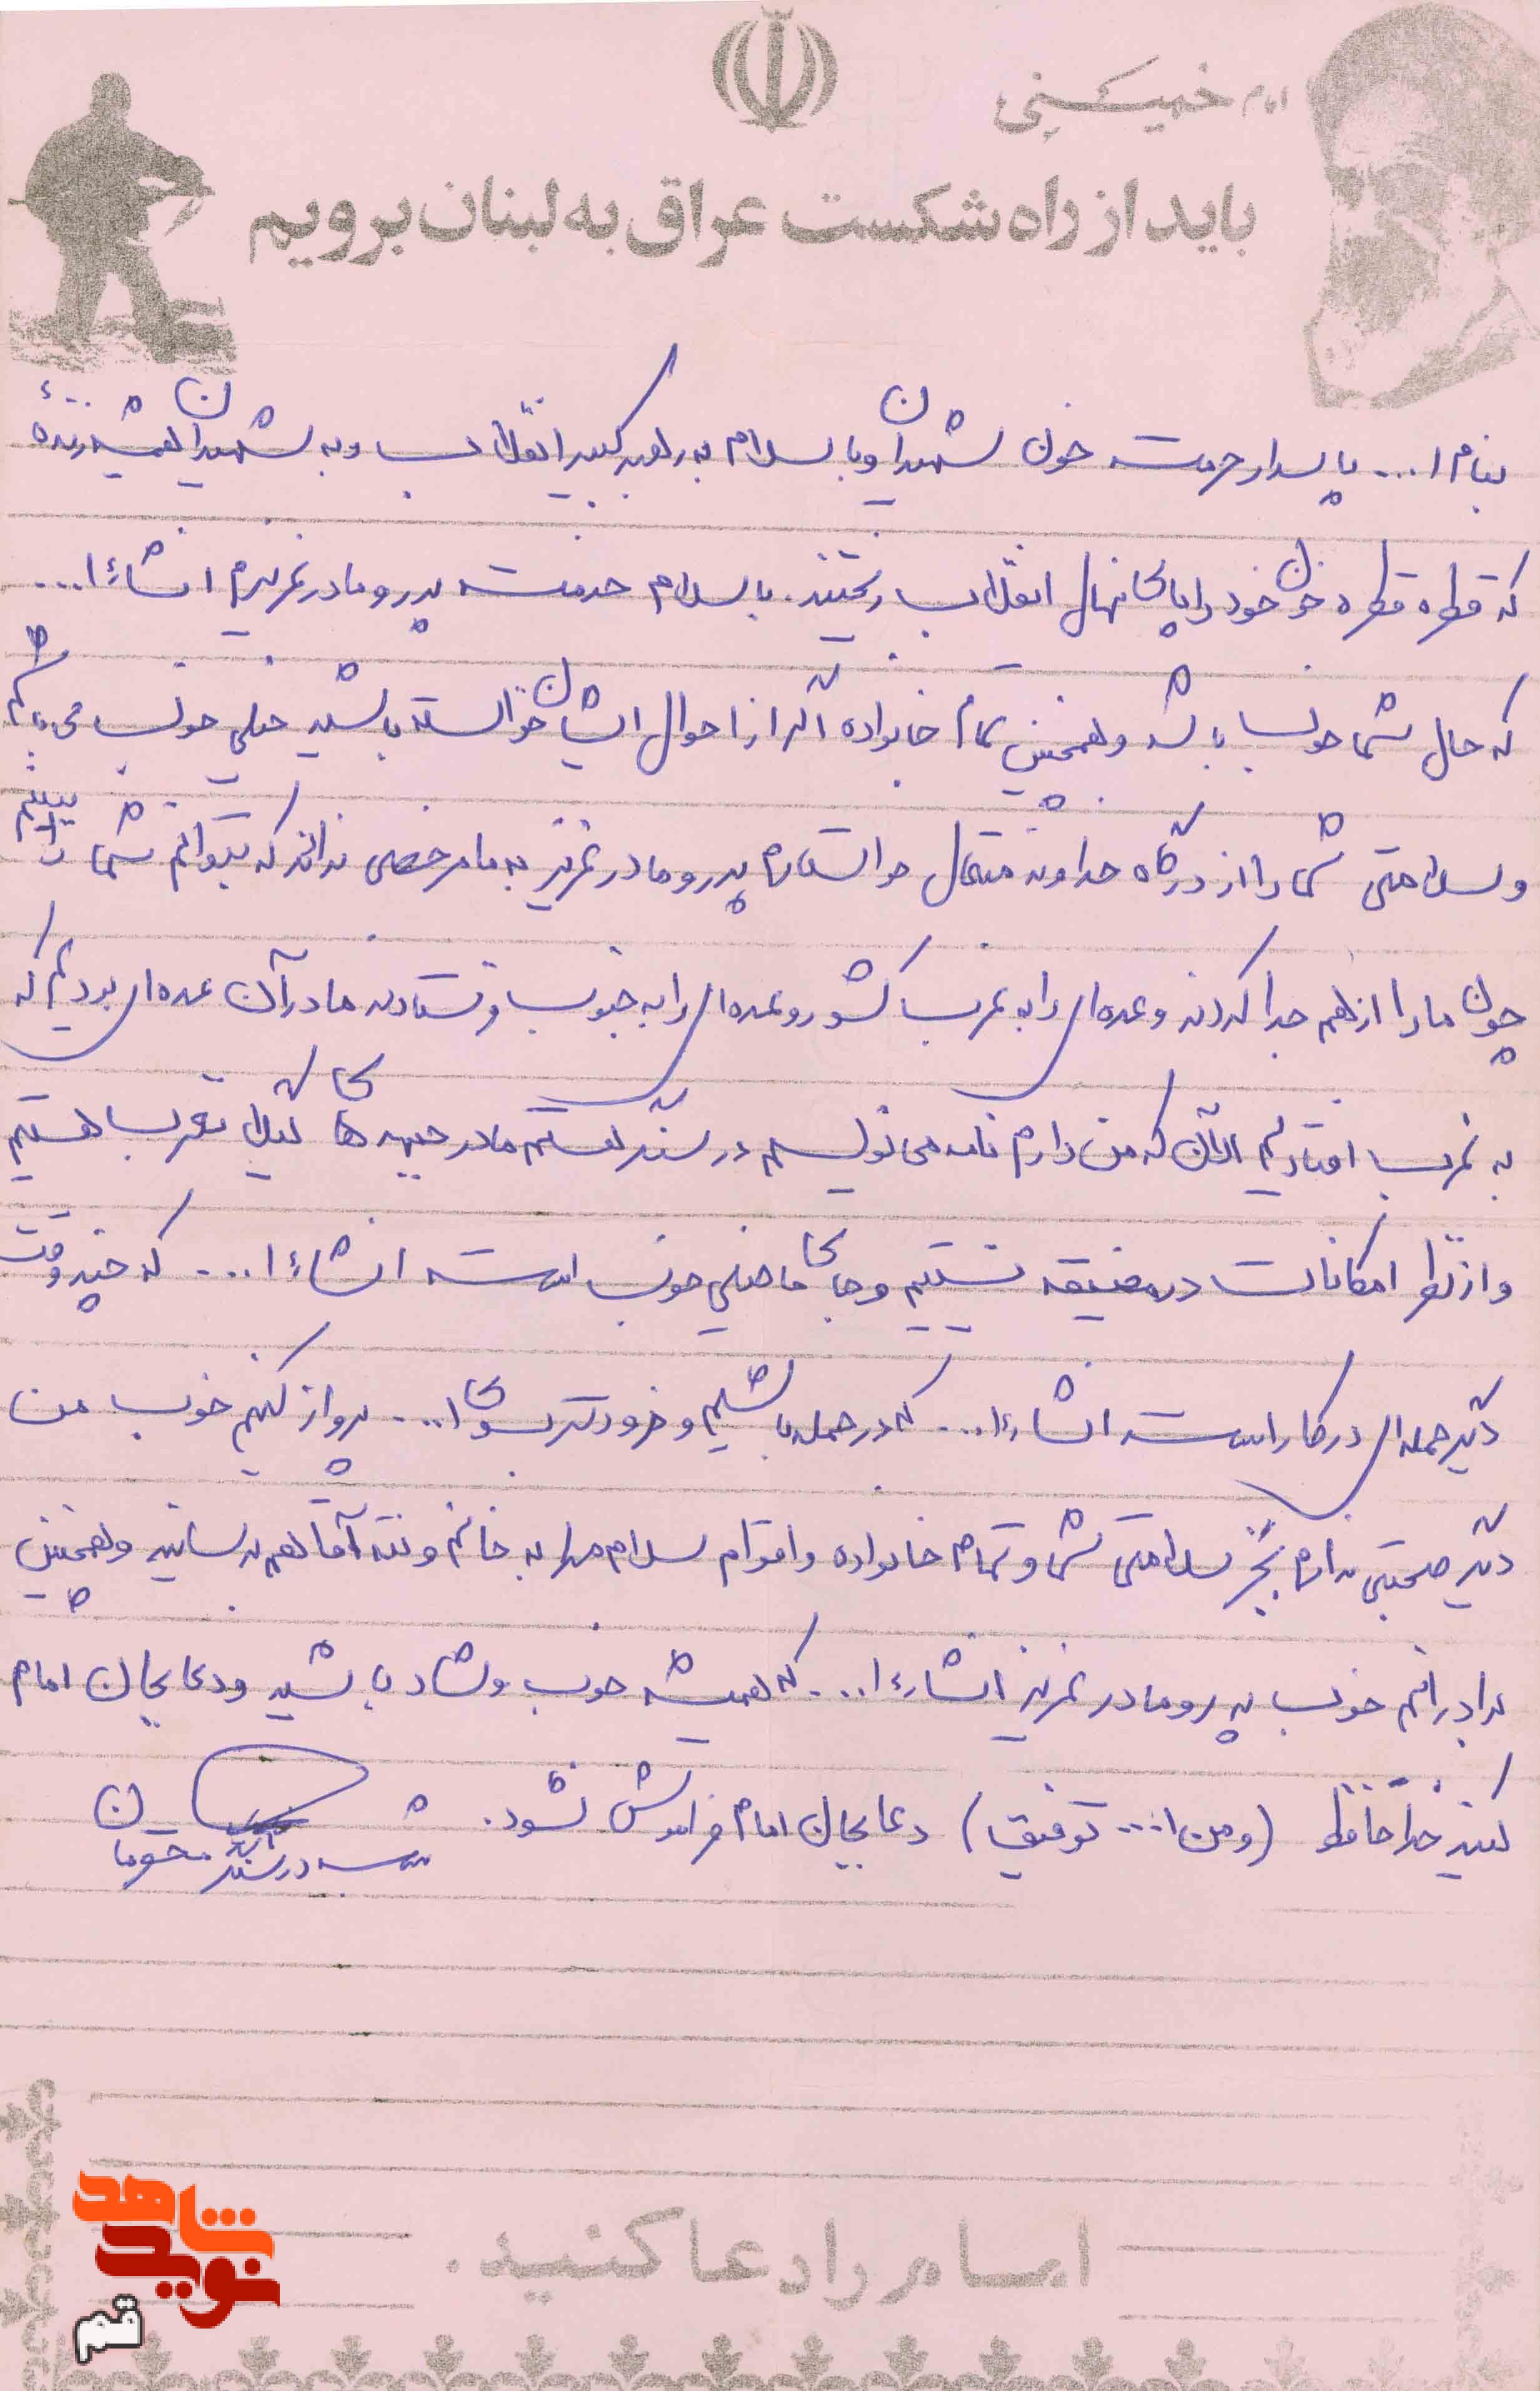 امام خمینی
باید از راه شکست عراق به لبنان برویم
بنام ا... پاسدار حرمت خون شهیدان و با سلام به رهبر کبیر انقلاب و به شهیدان همیشه زنده
که قطره قطره خون خود را پای نهال انقلاب ریختند. با سلام خدمت پدر و مادر عزیزم انشاءا...
که حال شما خوب باشد و همچنین تمام خانواده اگر از احوال ایشان خواسته باشید خیلی خوب می‌باشم
و سلامتی شما را از درگاه خداوند متعال خواستارم پدر و مادر عزیز به ما مرخصی ندادند که بتوانم شما را ببینم
چون ما را از هم جدا کردند و عده‌ای را به غرب کشور و عده‌ای را به جنوب فرستادند ما در آن عده‌ای بودیم که
به غرب افتادیم الآن که من دارم نامه می‌نویسم در سنگر نشستم ما در جبهه‌ها گیلانغرب هستیم
و از نظر امکانات در مضیقه نیستیم و جای ما خیلی خوب است انشاءا... که چند وقت
دیگر حمله‌ای در کار است انشاءا... که در حمله باشیم و هر زودتر بسوی ا... پرواز کنیم خوب من
دیگر صحبتی ندارم بجز سلامتی شما و تمام خانواده و اقوام سلام مرا به خانم و ننه آقا هم برسانید و همچنین
برادرانم خوب پدر و مادر عزیز انشاءا... که همیشه خوب و شاد باشید و دعا بجان امام
کنید خداحافظ (و من ا... توفیق) دعا بجان امام فراموش نشود.
شب در سنگر
امام را دعا کنید.
نوید شاهد
قم